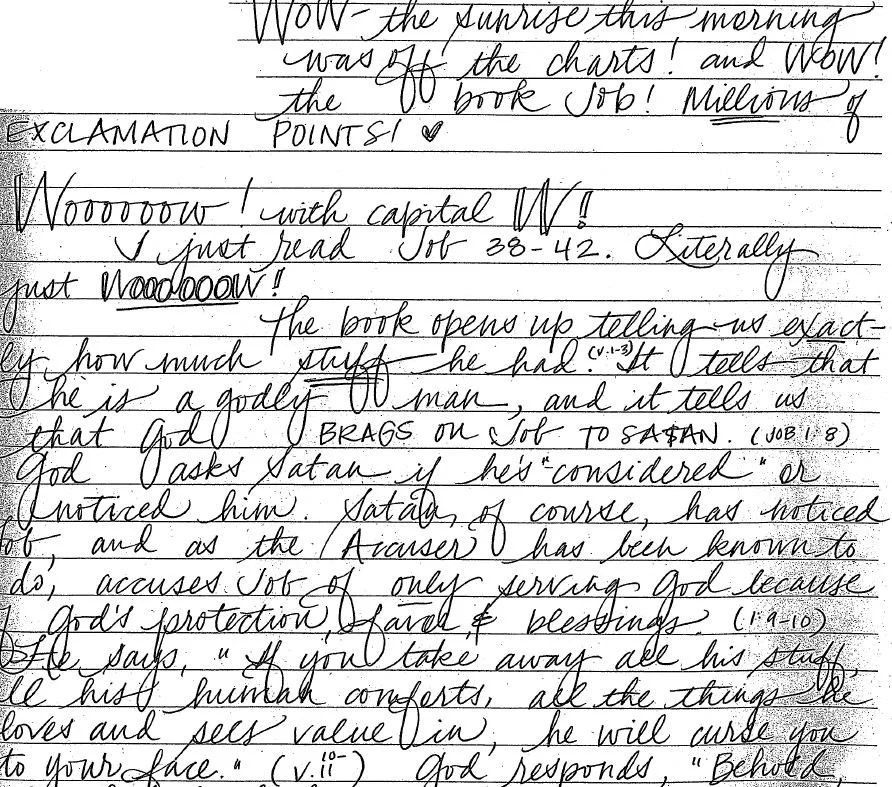 WOW- the sunrise this morning
was off the charts! and WOW!
the book Job! Millions of
EXCLAMATION POINTS! ♥
Woooooow! with capital W!!
I just read Job 38-42. Literally
just WOOOOOOW!!
The book opens up telling us exact-
ly how much stuff he had. (v. 1-3) It tells that
he is a godly man, and it tells us
that God BRAGS on Job TO SATAN. (JOB 1:8)
God asks Satan if he's "considered" or
noticed him. Satan, of course, has noticed
ob, and as the (Accuser) has been known to
do, accuses Job of only serving God because
God's protection, favor, & blessings. (1:9-10)
He says, "If you take away all his stuff,
ll his human comforts, all the things he
loves and sees value in, he will curse you
to your face." (v. 10-11) God responds, "Behold,